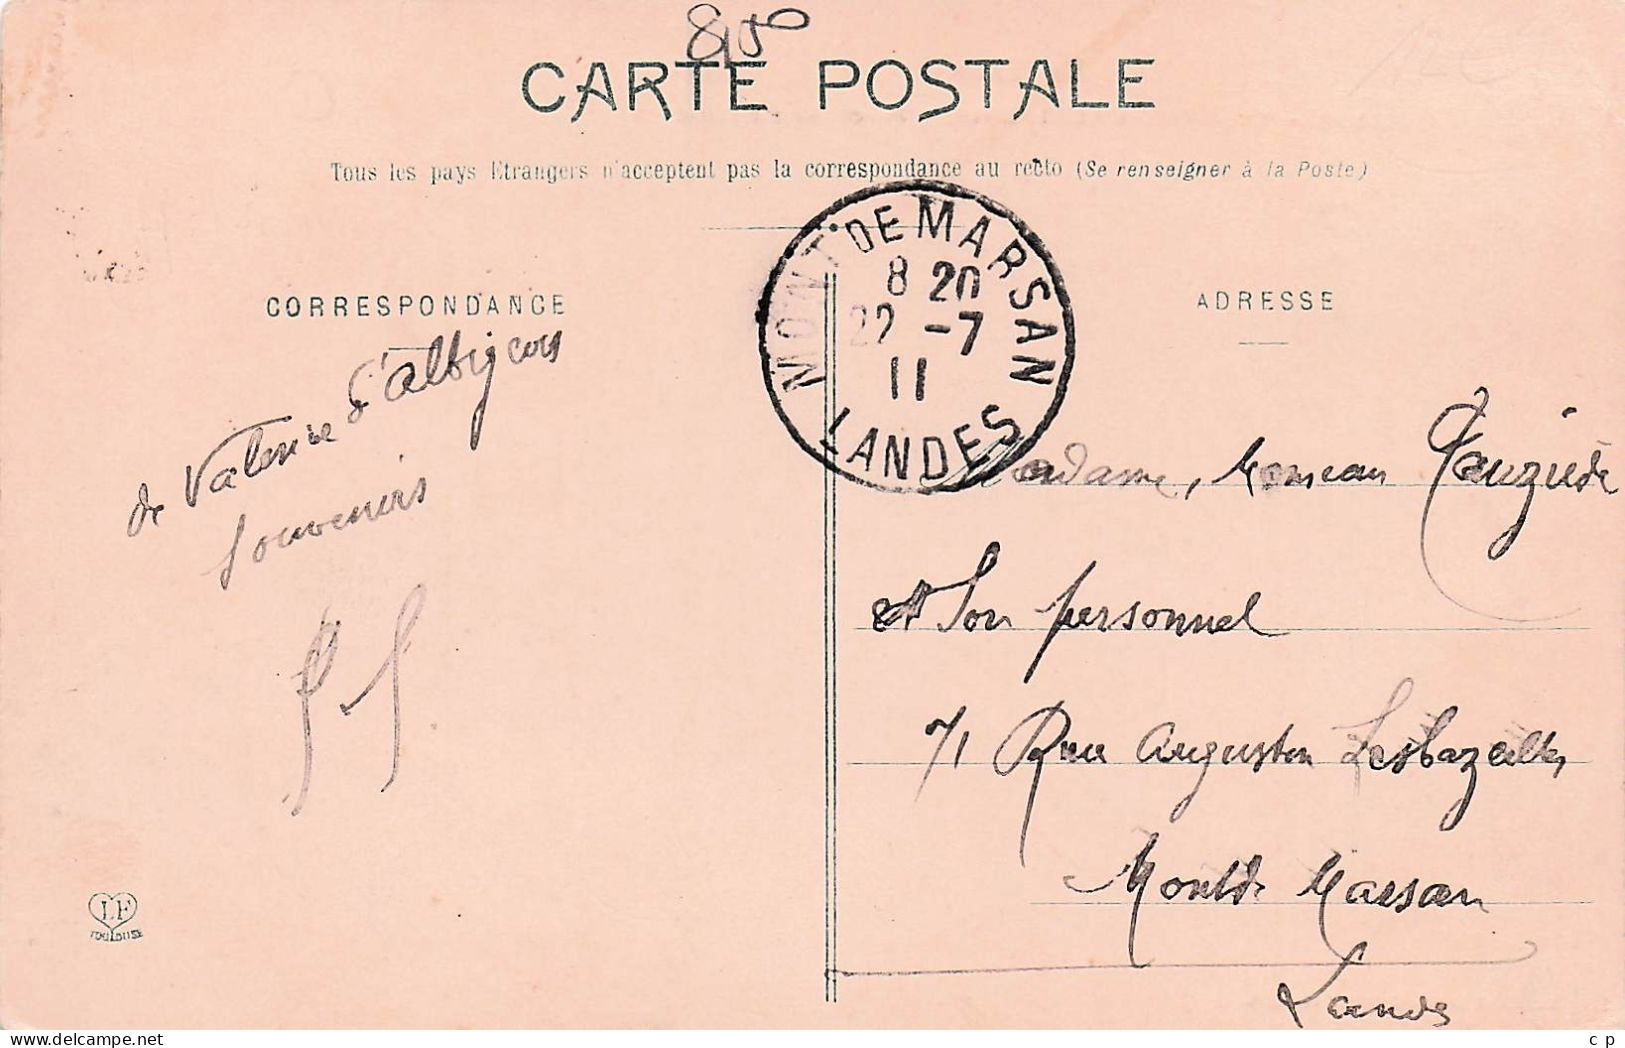 8,50
CARTE POSTALE
Tous les pays Etrangers n'acceptent pas la correspondance au recto (Se renseigner à la Poste)
MONT DE MARSAN
8 20
22 -7
11
LANDES
CORRESPONDANCE
de Valence d'albigeois
Souvenirs
ADRESSE
Madame,
et Son personnel
71 Rue Augustin Lesbazeilles
Mont de Marsan
Landes
LF
TOULOUSE
c p